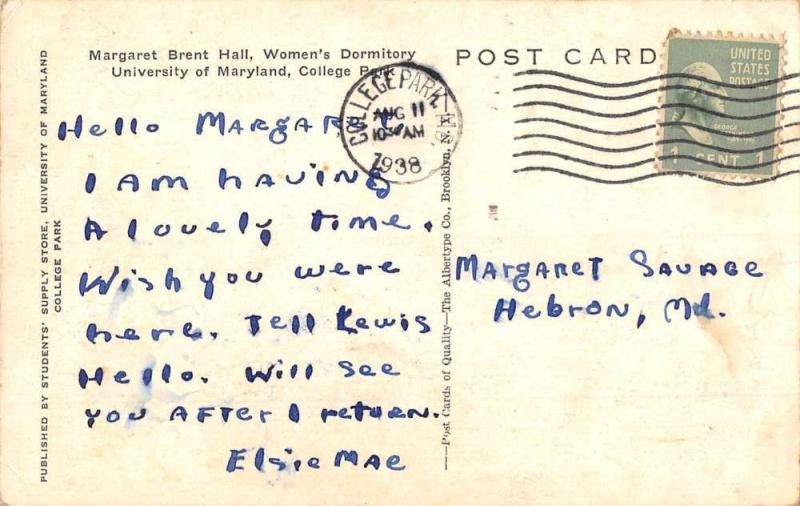 Margaret Brent Hall, Women's Dormitory
University of Maryland, College Park
POST CARD
COLLEGE PARK MD.
AUG 11
1030 AM
1938
UNITED
STATES
POSTAGE
GEORGE
1 CENT 1
Hello Margaret
I am having
A lovely time.
Wish you were
here. Tell Lewis
Hello. Will see
you after I return.
Elsie Mae
Margaret Savage
Hebron, Md.
PUBLISHED BY STUDENTS' SUPPLY STORE, UNIVERSITY OF MARYLAND
COLLEGE PARK
—Post Cards of Quality—The Albertype Co., Brooklyn, N. Y.